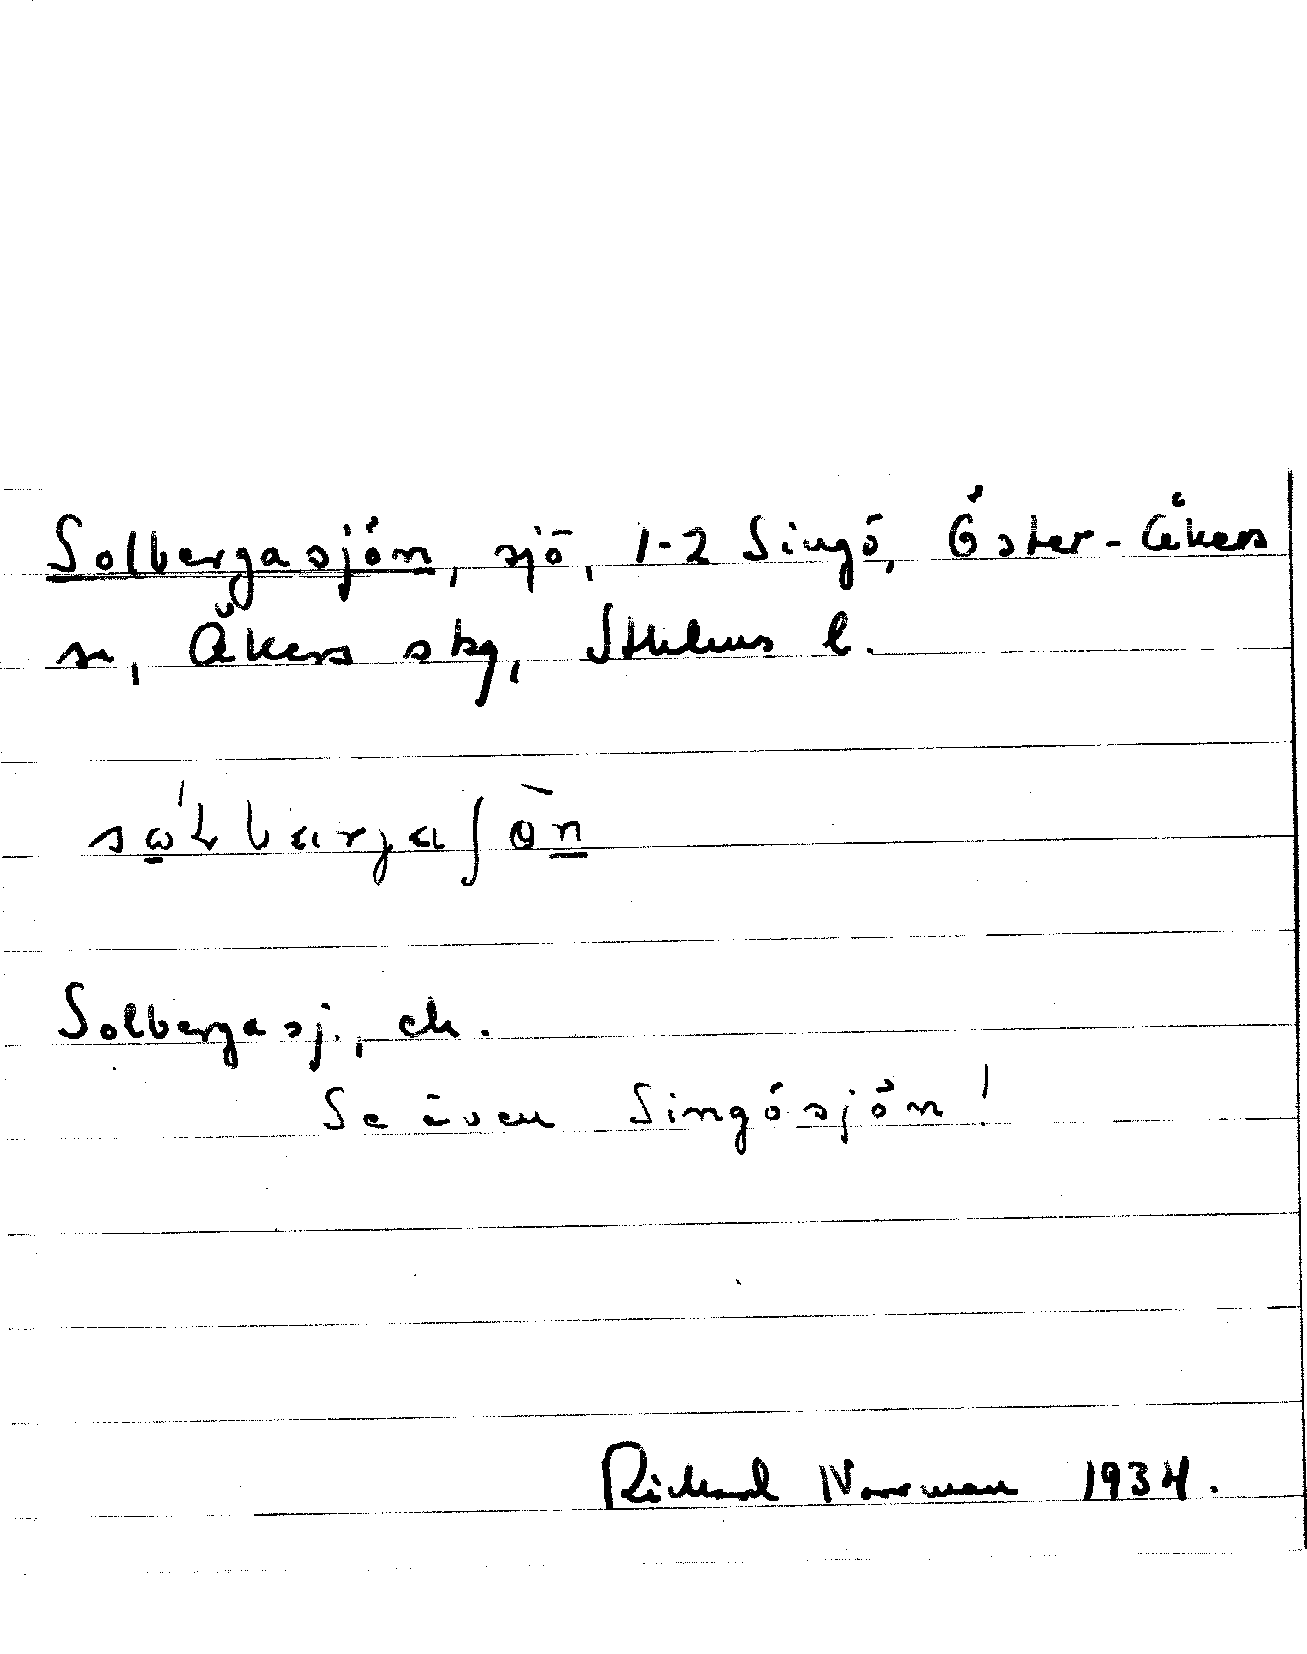 Solbergasjön, sjö, 1-2 Singö, Öster-Åkers
sn, Åkers skg, Sthlms l.
Solbergasj., ek.
Se även Singösjön!
Rickard Norrman 1934.